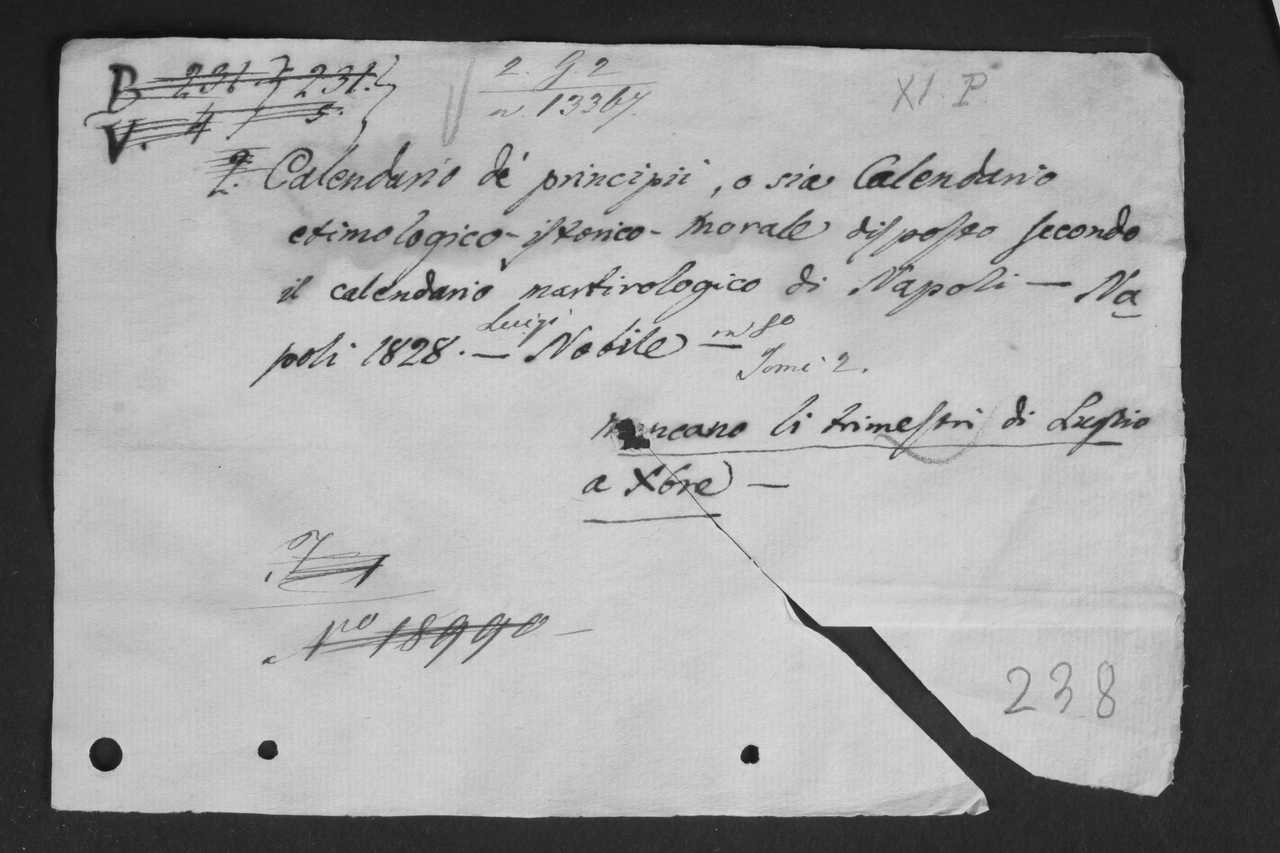 B 231 } 231. }
V. 4 / 5.
2. g. 2
n. 13367.
XI. P
2. Calendario de' principii, o sia Calendario
etimologico-istorico-morale disposto secondo
il calendario martirologico di Napoli — Na
poli 1828. — Luigi Nobile — in 8o
Tomi 2.
mancano li trimestri di Luglio
a Xbre —
No 18990 —
238